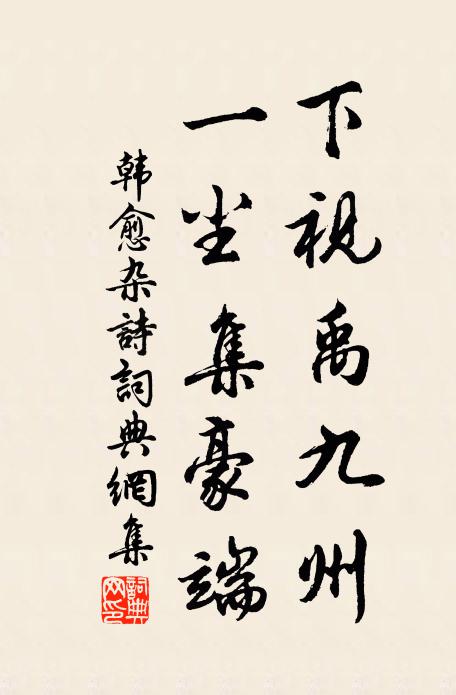 下视禹九州
一尘集豪端
韩愈杂詩詞典網集
詞典网印